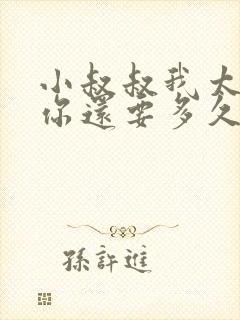 小叔叔我太
你還要多久
孫許進